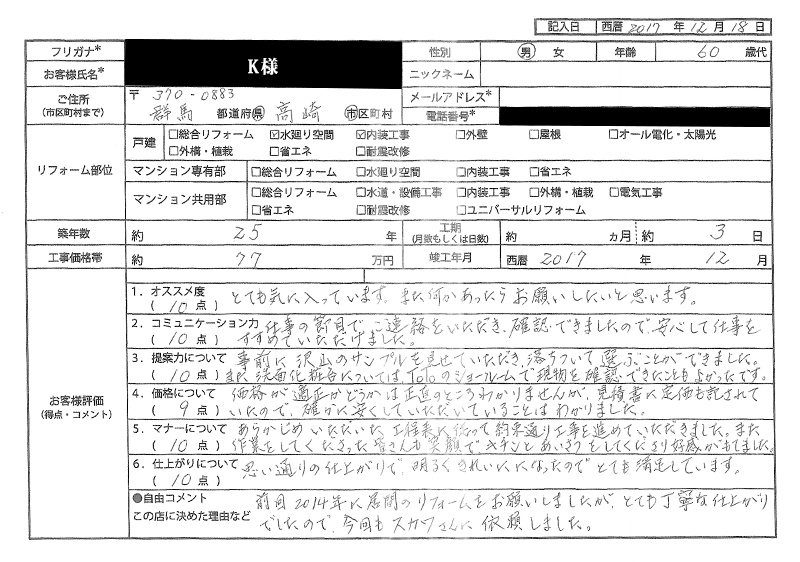 記入日 西暦 2017 年 12 月 18 日
フリガナ*
お客様氏名* K様
性別 男 女 年齢 60 歳代
ニックネーム
ご住所 (市区町村まで) 〒 370-0883
群馬 都道府県 高崎 市区町村
メールアドレス*
電話番号*
リフォーム部位
戸建 □総合リフォーム ☑水廻り空間 ☑内装工事 □外壁 □屋根 □オール電化・太陽光
□外構・植栽 □省エネ □耐震改修
マンション専有部 □総合リフォーム □水廻り空間 □内装工事 □省エネ
マンション共用部 □総合リフォーム □水道・設備工事 □内装工事 □外構・植栽 □電気工事
□省エネ □耐震改修 □ユニバーサルリフォーム
築年数 約 25 年 工期 (月数もしくは日数) 約 ヵ月 約 3 日
工事価格帯 約 77 万円 竣工年月 西暦 2017 年 12 月
お客様評価 (得点・コメント)
1．オススメ度 (10点) とても気に入っています。また何かあったらお願いしたいと思います。
2．コミュニケーション力 (10点) 仕事の節目でご連絡をいただき、確認できましたので、安心して仕事を
すすめていただけました。
3．提案力について (10点) 事前に沢山のサンプルを見せていただき、落ちついて選ぶことができました。
また洗面化粧台については、TOTOのショールームで現物を確認できたこともよかったです。
4．価格について (9点) 価格が適正かどうかは正直のところわかりませんが、見積書に定価も記されて
いたので、確かに安くしていただいていることはわかりました。
5．マナーについて (10点) あらかじめいただいた工程表に従って約束通り工事を進めていただきました。また
作業をしてくださった皆さんも笑顔でキチンとあいさつをしてくださり好感がもてました。
6．仕上がりについて (10点) 思い通りの仕上がりで、明るくきれいになったのでとても満足しています。
●自由コメント
この店に決めた理由など
前回2014年に居間のリフォームをお願いしましたが、とても丁寧な仕上がり
でしたので、今回もスカワさんに依頼しました。